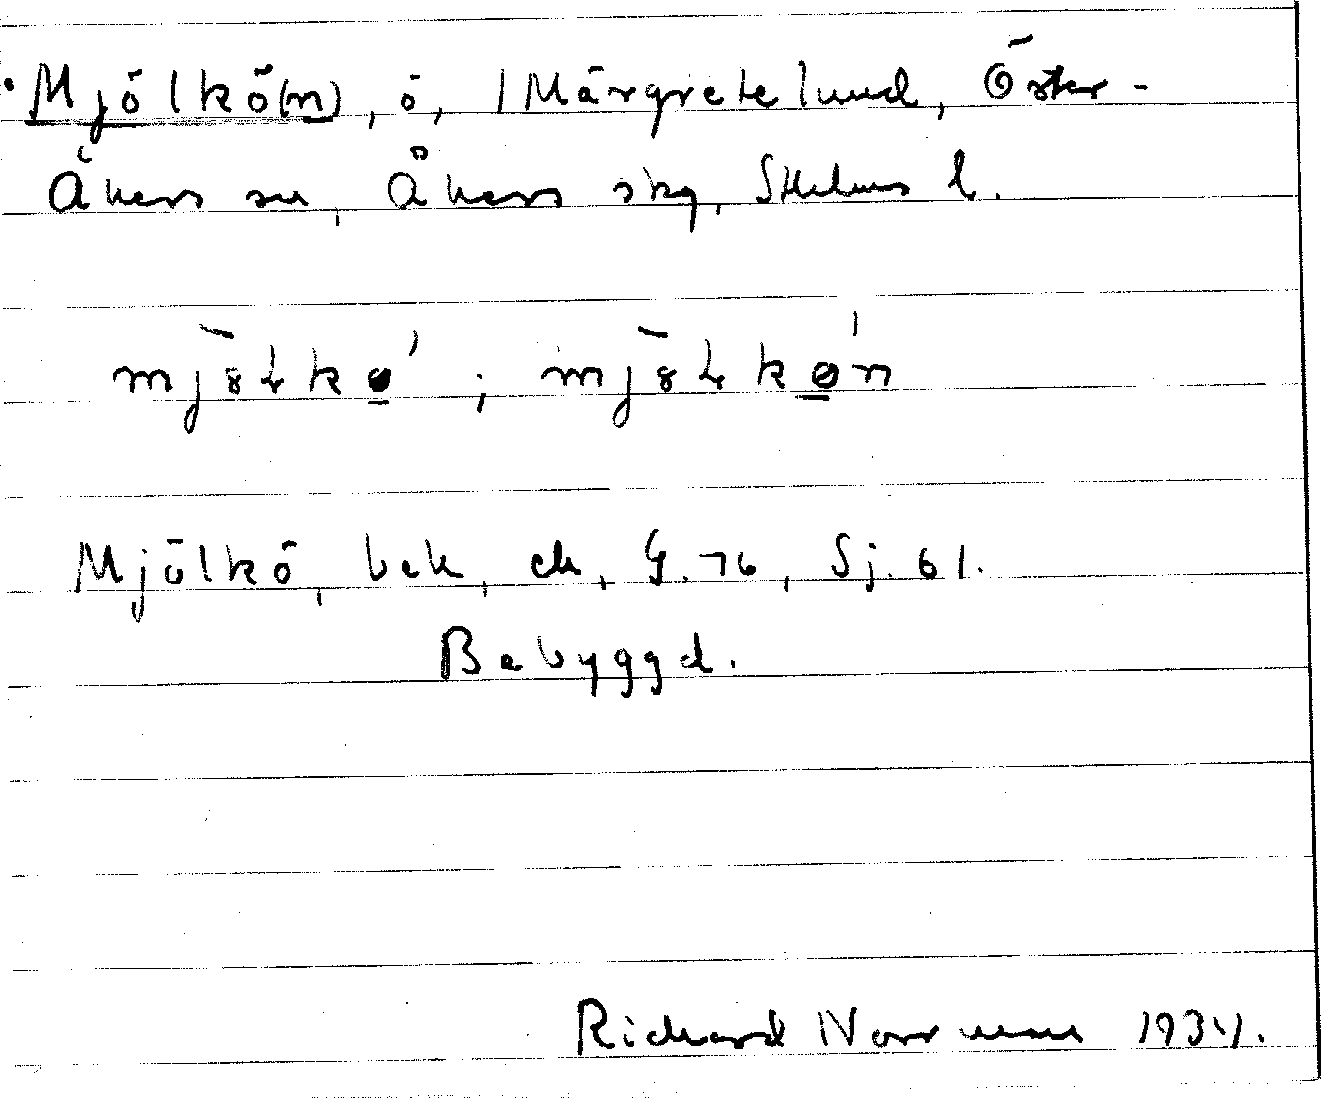 Mjölkö(n), ö, / Märgretelund, Öster-
Åkers sn, Åkers skg, Sthlms l.
Mjölkö, bek, ek, G. 76, Sj. 61.
Bebyggd.
Richard Norrman 1934.